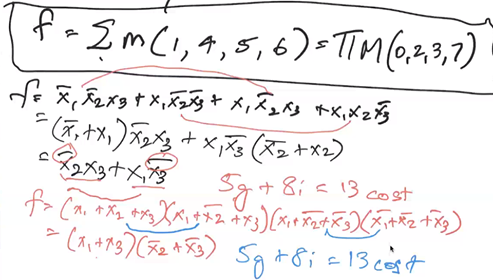 f = Σ m(1, 4, 5, 6) = ΠM(0,2,3,7)
f = x̅₁x̅₂x₃ + x₁x̅₂x̅₃ + x₁x̅₂x₃ + x₁x₂x̅₃
= (x̅₁+x₁)x̅₂x₃ + x₁x̅₃(x̅₂+x₂)
= x̅₂x₃ + x₁x̅₃
5g + 8i = 13 cost
f = (x₁+x₂+x₃)(x₁+x̅₂+x₃)(x₁+x̅₂+x̅₃)(x̅₁+x̅₂+x̅₃)
= (x₁+x₃)(x̅₂+x̅₃)
5g+8i = 13 cost